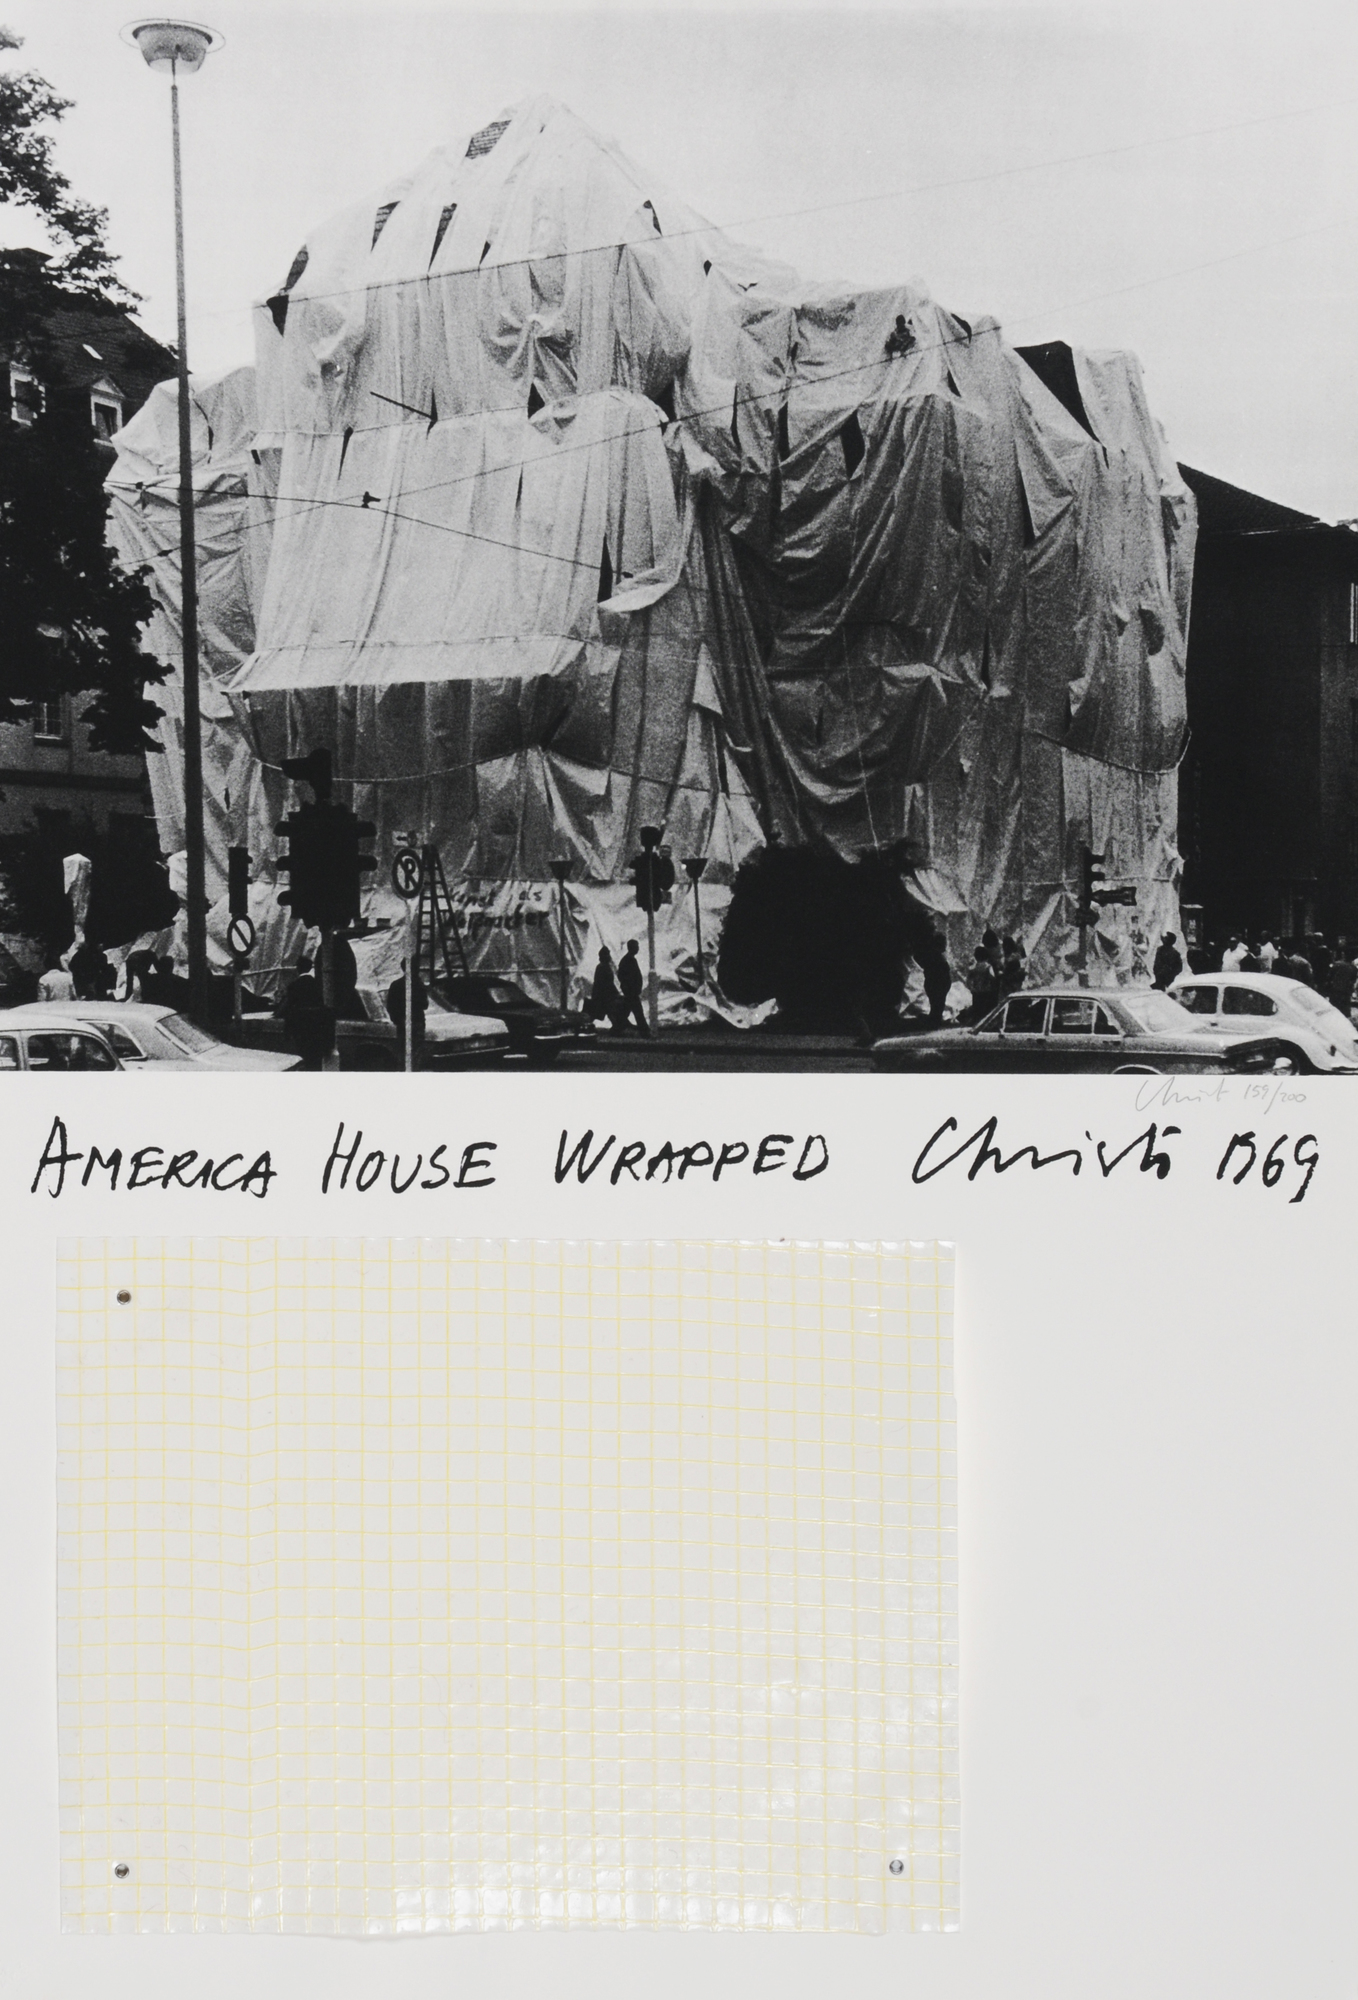 Kunst als
Christo 159/200
AMERICA HOUSE WRAPPED Christo 1969